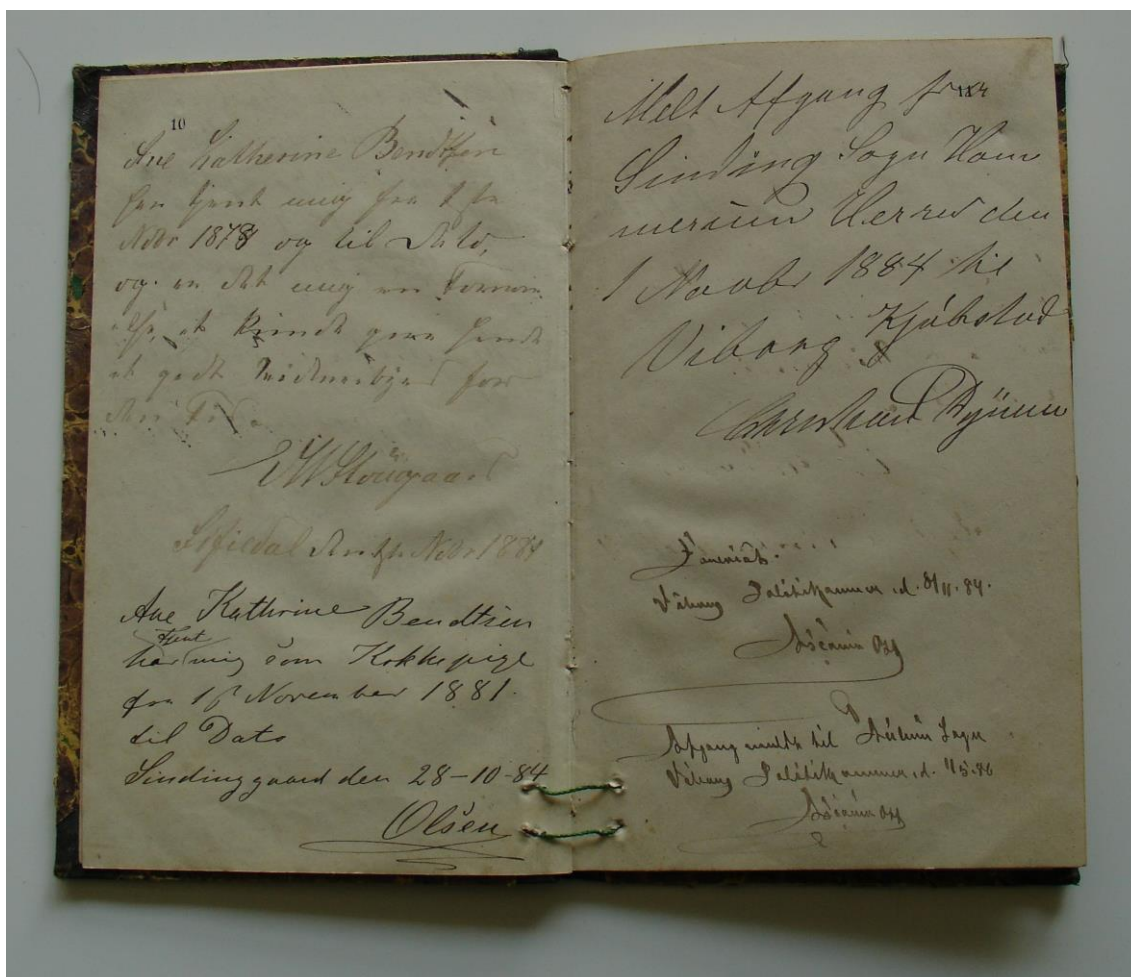 10
Ane Katherine Bendtsen
har tjent mig fra 1ste
Novbr 1878 og til Dato,
og er det mig en Fornøi
else, at kunde give hende
et godt Vidnesbyrd for
den Tid.
Skougaard
den 1ste Novbr 1881
Ane Kathrine Bendtsen
har tjent mig som Kokkepige
fra 1ste November 1881.
til Dato
Sindinggaard den 28-10-84
Olsen
11
Melt Afgang fra
Sinding Sogn Ham
merum Herred den
1 Novbr 1884 til
Viborg Kjøbstad
Foreviist.
Viborg Politikammer, d. 8/11.84.
Afgang meldt til Sogn
Viborg Politikammer, d. 1/5.86